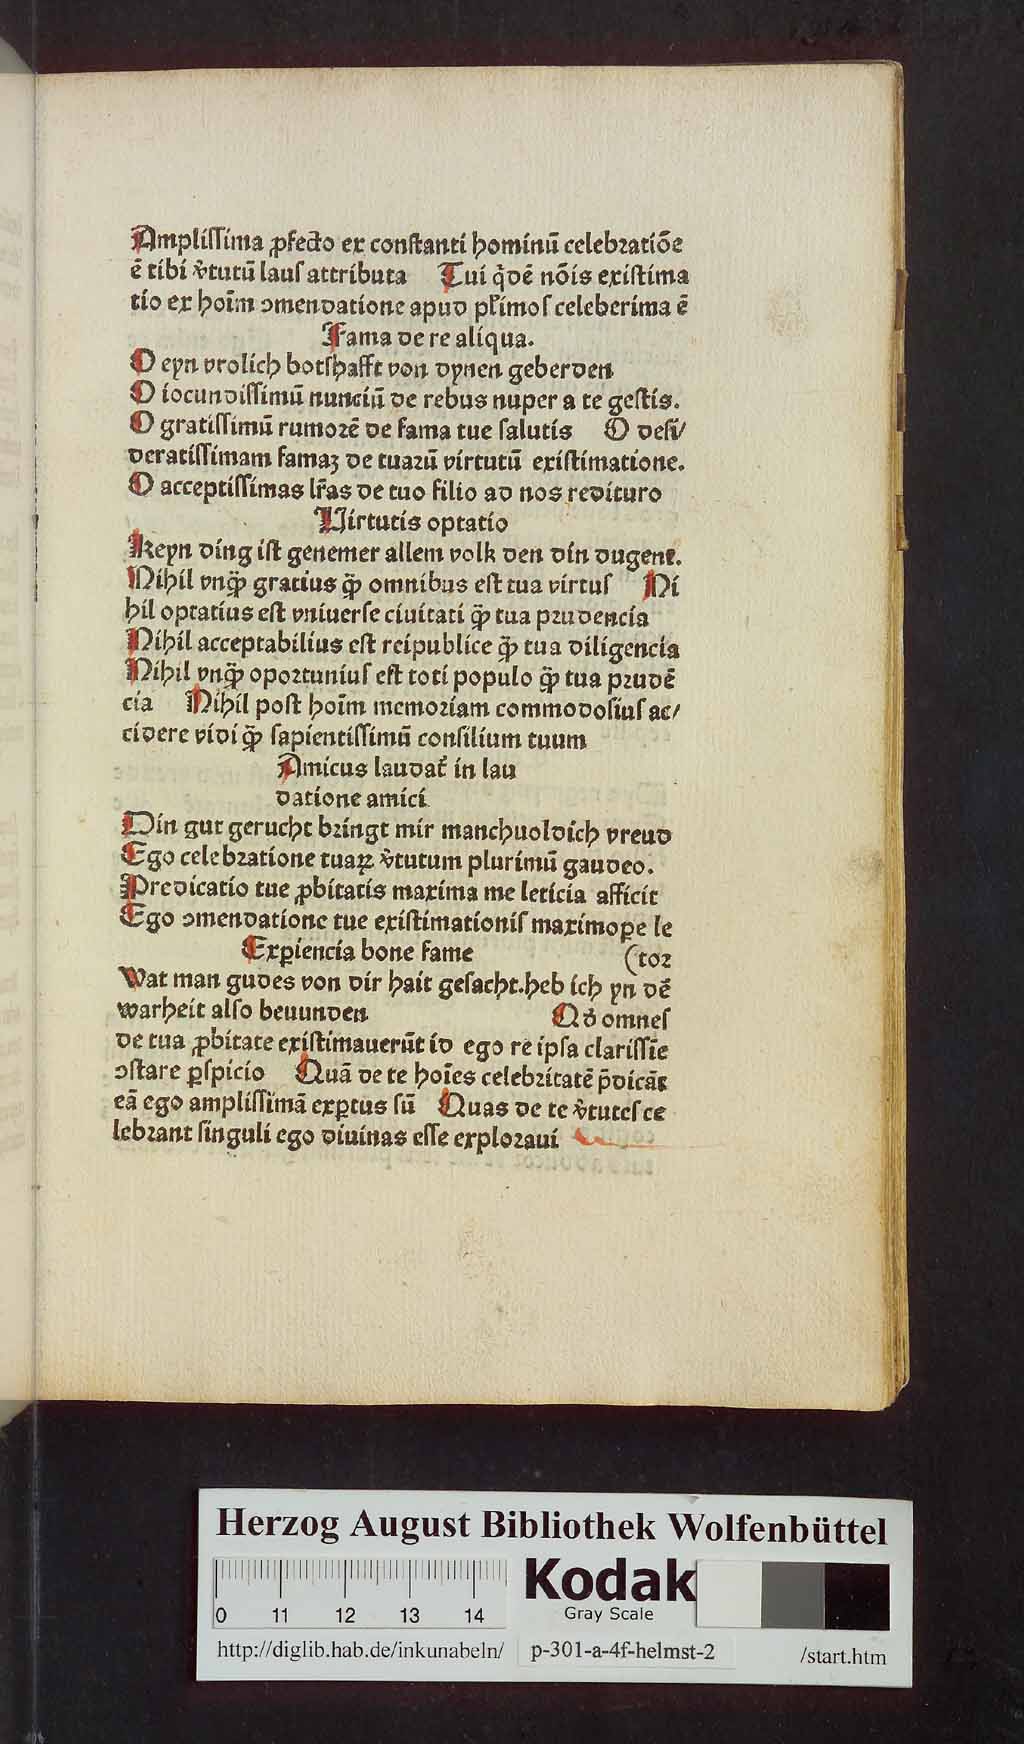 Ampliſſima ꝓfecto ex conſtanti hominū celebꝛatiōe
ē tibi v̊tutū lauſ attributa Tui q̇dē nōis exiſtima
tio ex hoīm ↄmendatione apud pl̄rimoſ celeberima ē
Fama de re aliqua.
O eyn vrolich botſhafft von dynen geberden
O iocundiſſimū nunciū de rebus nuper a te geſtis.
O gratiſſimū rumoꝛē de fama tue ſalutis O deſi/
deratiſſimam famaꝫ de tuaꝛū virtutū exiſtimatione.
O acceptiſſimas lr̄as de tuo filio ad nos redituro
Virtutis optatio
Keyn ding iſt genemer allem volk den din dugent.
Nihil vnq̄ꝫ gratius q̄ꝫ omnibus eſt tua virtuſ Ni
hil optatius eſt vniuerſe ciuitati q̄ꝫ tua pꝛudencia
Nihil acceptabilius eſt reipublice q̄ꝫ tua diligencia
Nihil vnq̄ꝫ opoꝛtuniuſ eſt toti populo q̄ꝫ tua pꝛudē
cia Nihil poſt hoīm memoꝛiam commodoſiuſ ac/
cidere vidi q̄ꝫ ſapientiſſimū conſilium tuum
Amicus laudat̄ in lau
datione amici
Din gut gerucht bꝛingt mir manchuoldich vreud
Ego celebꝛatione tuaꝝ v̊tutum plurimū gaudeo.
Predicatio tue ꝓbitatis maxima me leticia afficit
Ego ↄmendatione tue exiſtimationiſ maximoꝑe le
Exꝑiencia bone fame (toꝛ
Wat man gudes von dir hait geſacht.heb ich yn dē
warheit alſo beuunden Qd̄ omneſ
de tua ꝓbitate exiſtimauerūt id ego re ipſa clariſſīe
ↄſtare ꝑſpicio Quā de te hoīes celebꝛitatē p̄dicāt
eā ego ampliſſimā exꝑtus ſū Quas de te v̊tuteſ ce
lebꝛant ſinguli ego diuinas eſſe exploꝛaui
Herzog August Bibliothek Wolfenbüttel
Kodak
Gray Scale
0 11 12 13 14
http://diglib.hab.de/inkunabeln/ p-301-a-4f-helmst-2 /start.htm